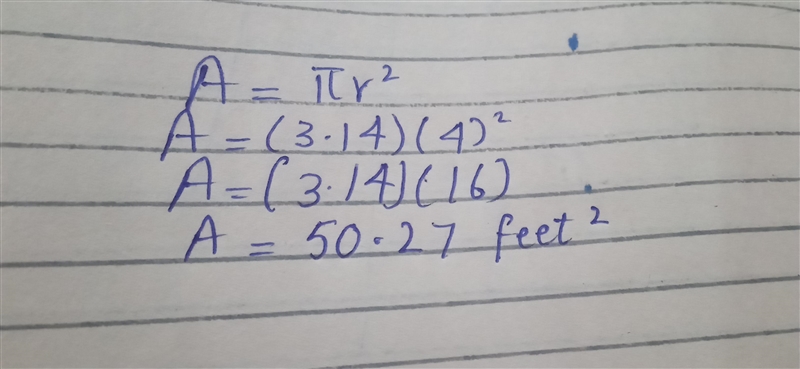 A = πr²
A = (3.14)(4)²
A = (3.14)(16)
A = 50.27 feet²